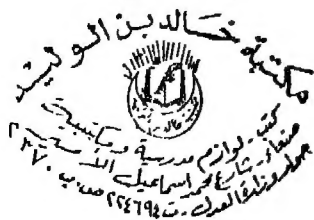 مكتبة خالد بن الوليد
كتب - لوازم مدرسية ومكتبية
صنعاء - شارع محمد اسماعيل
جوار وزارة العدل - ت ٢٢٤٦٩٤ ص.ب ٢٣٧٠